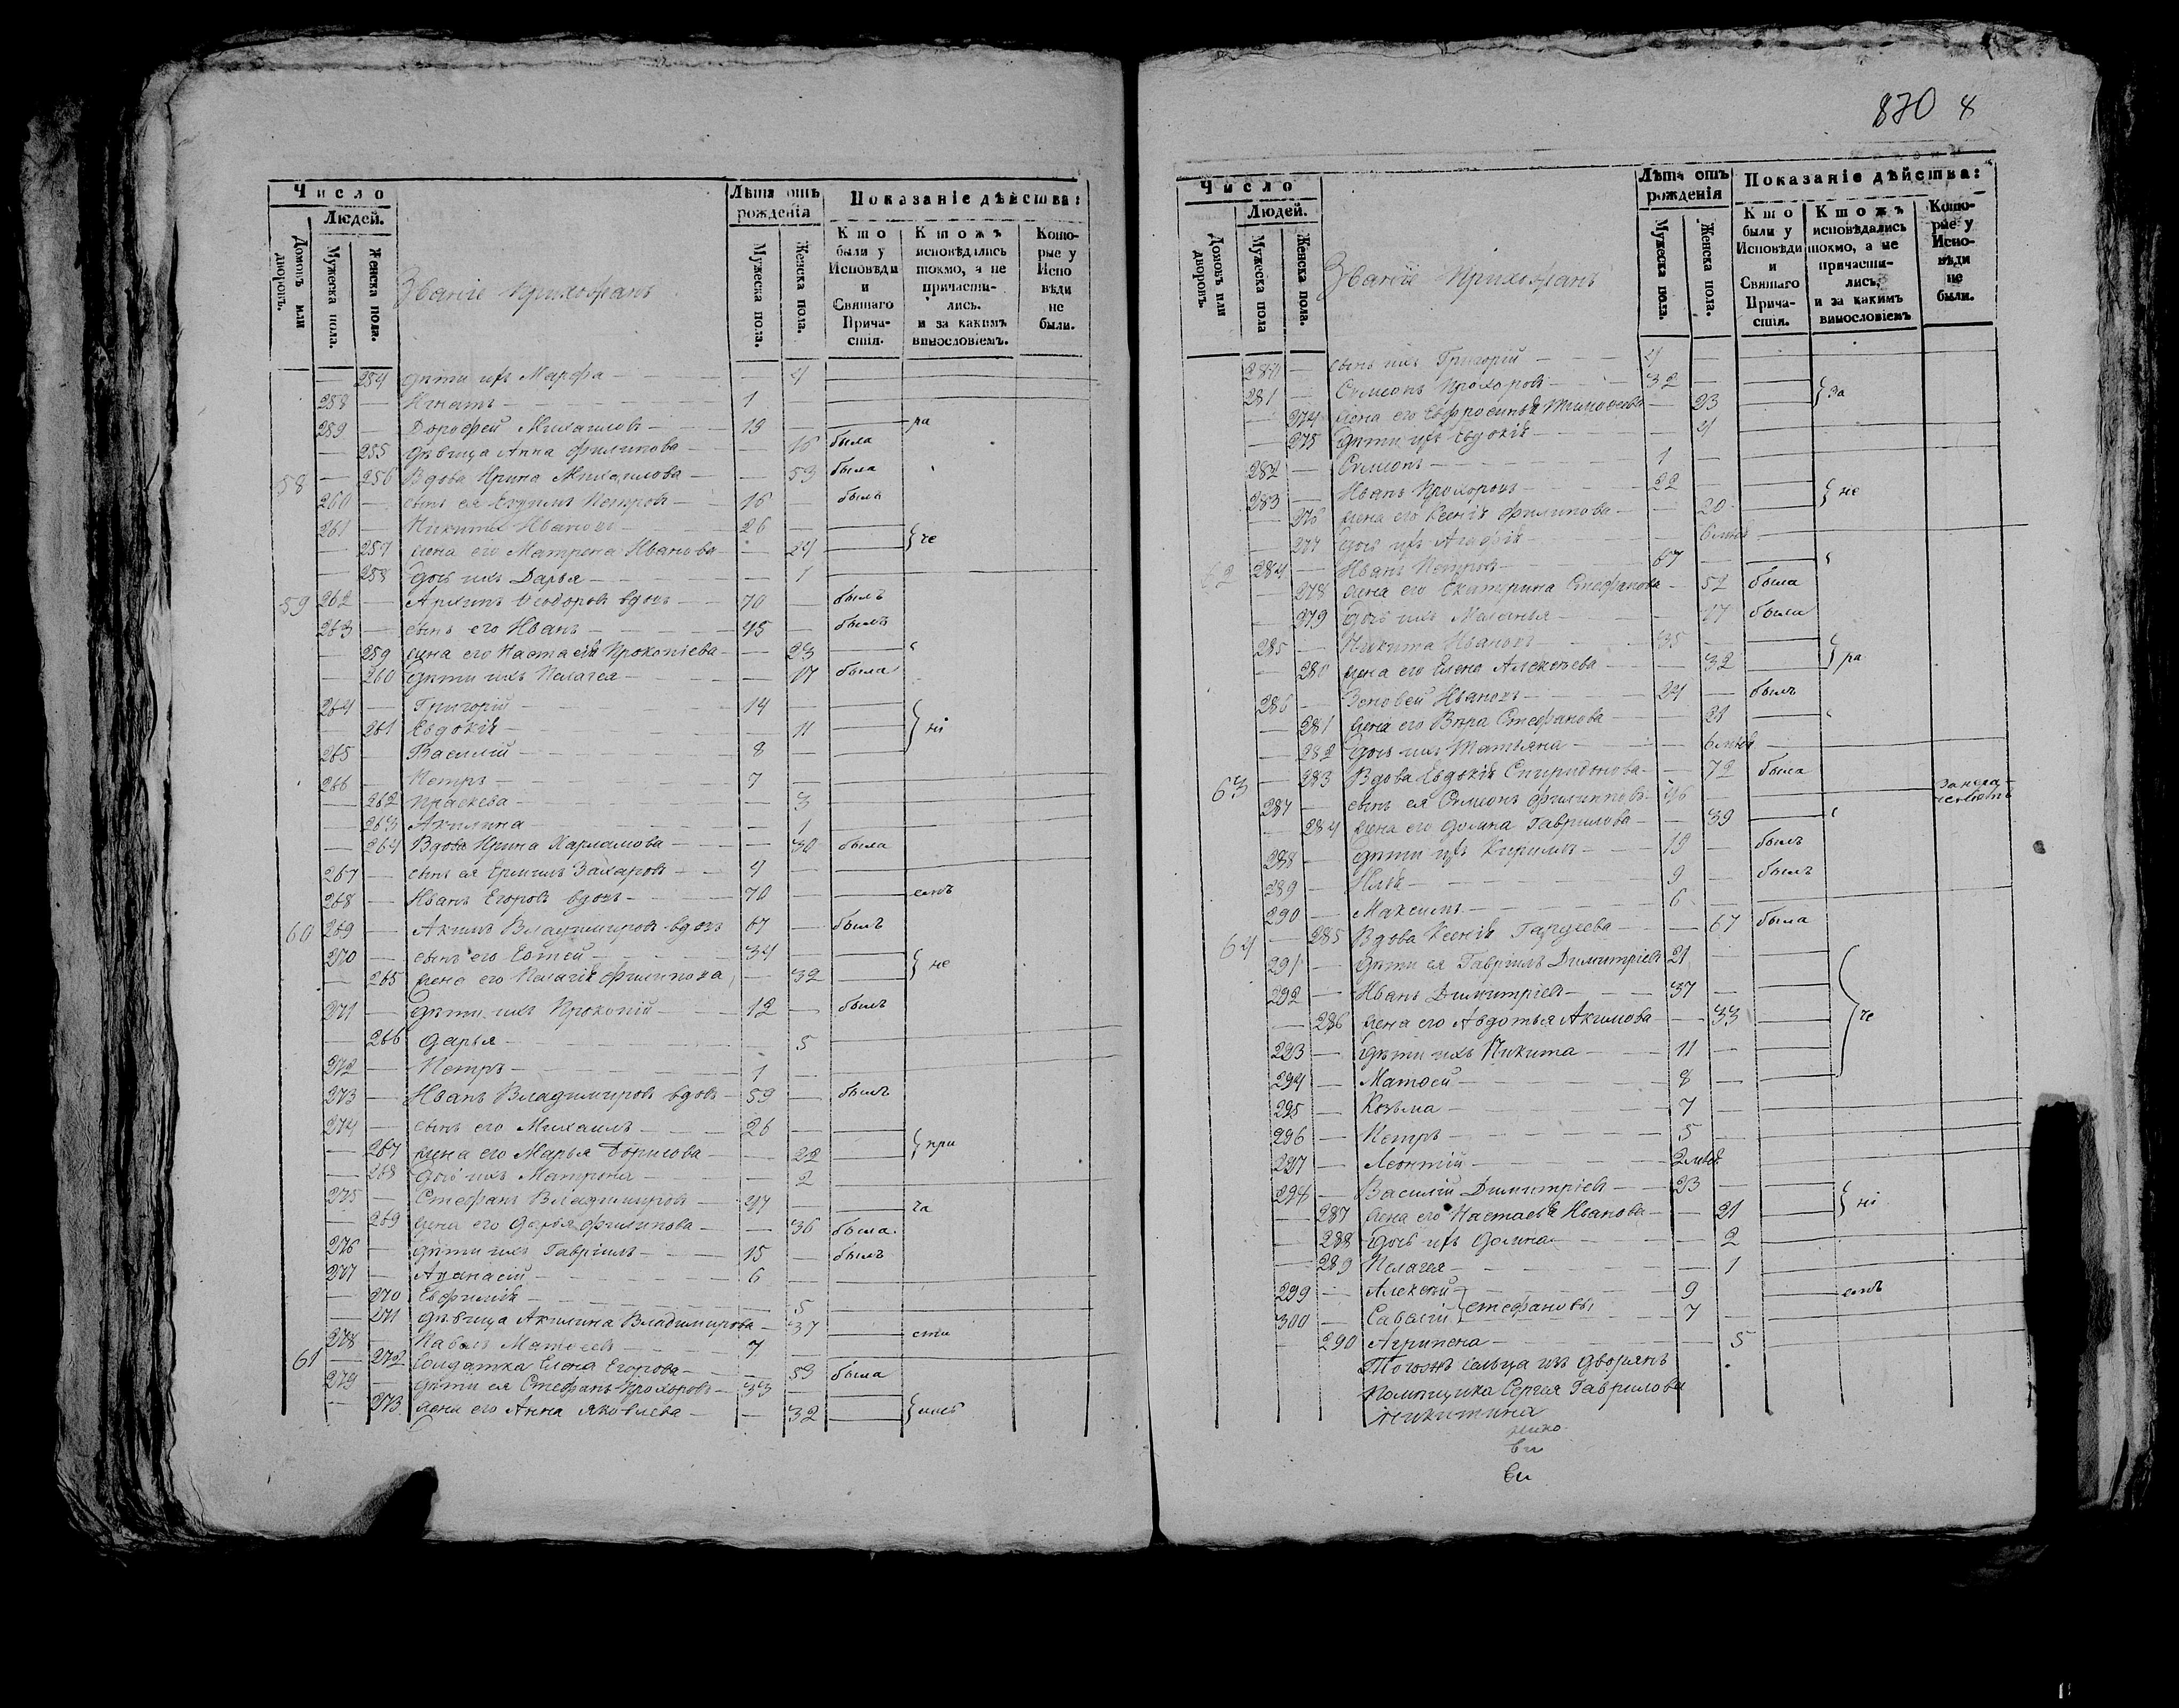 870 8
Число
Людей.
Домовъ или дворовъ.
Мужеска пола.
Женска пола.
Званіе Прихожанъ
Лѣта отъ рожденія
Мужеска пола.
Женска пола.
Показаніе дѣйства:
Кто были у Исповѣди и Святаго Прича-стія.
Ктожъ исповѣдались токмо, а не причасти-лись. и за какимъ винословіемъ.
Кото-рые у Испо вѣди не были.
— 254 дѣти ихъ Марфа — — 4 —
258 — Игнатъ — 1 —
259 — Дорофей Михаиловъ — 19 — — ра
— 255 дѣвица Анна Филипова — — 16 была
58 — 256 Вдова Ирина Михаилова — — 53 была
260 — сынъ ея Петровъ — 16 — былъ
261 — Никита Ивановъ — 26 — —
— 257 жена его Матрена Иванова — — 24 — } че
— 258 дочь ихъ Дарья — — 1 —
59 262 — Архипъ Ѳеодоровъ вдовъ — 70 — былъ
263 — сынъ его Иванъ — 45 — былъ
— 259 жена его Настасія Прокопіева — — 23 —
— 260 дѣти ихъ Пелагея — — 17 была
264 — Григорій — 14 — —
— 261 Евдокія — — 11 — } ні
265 — Василій — 8 — —
266 — Петръ — 7 —
— 262 Праскева — — 3 —
— 263 Акилина — — 1 —
— 264 Вдова Ирина Харламова — — 30 была
267 — сынъ ея Ермилъ Захаровъ — 9 —
268 — Иванъ Егоровъ вдовъ — 70 — — емъ
60 269 — Акимъ Владимировъ вдовъ 67 — былъ
270 — сынъ его — 34 — —
— 265 жена его Пелагія Филипова — 32 — } не
271 — дѣти ихъ Прокопій — 12 — былъ
— 266 Дарья — 5 —
272 — Петръ — 1 —
273 — Иванъ Владимировъ вдовъ — 59 — былъ
274 — сынъ его Михаилъ — 26 — —
— 267 жена его Марья Борисова — — 22 — } при
— 268 дочь ихъ Матрона — — 2 —
275 — Стефанъ Владимировъ — 47 — — ча
— 269 жена его Дарья Филипова — — 36 была
276 — дѣти ихъ Гавріилъ — 15 — былъ
277 — Аѳанасій — 6 —
— 270 Евфимія — 5 —
— 271 дѣвица Акилина Владимирова — 37 — сти
278 — Павелъ Матѳеевъ — 7
61 — 272 Солдатка Елена Егорова — 59 была
279 — дѣти ея Стефанъ Прохоровъ — 33 — —
— 273 жена его Анна Яковлева — — 32 —
Число
Людей.
Домовъ или дворовъ.
Мужеска пола
Женска пола.
Званіе Прихожанъ
Лѣта отъ рожденія
Мужеска пола.
Женска пола.
Показаніе дѣйства:
Кто были у Исповѣди и Святаго Прича-стія.
Ктожъ исповѣдались токмо, а не причасти-лись, и за какимъ винословіемъ
Кото-рые у Испо-вѣди не были.
280 — сынъ ихъ Григорій — 4 —
281 — Симеонъ Прохоровъ — 32 — —
— 274 жена его Евфросинья Тимоѳеева — 23 — } За
— 275 дѣти ихъ Евдокія — 4 —
282 — Симеонъ — 1 —
283 — Иванъ Прохоровъ — 22 — —
— 276 жена его Ксенія Филипова — — 20 — } не
— 277 дочь ихъ Агафія —
62 284 — Иванъ Петровъ — 67 — —
— 278 жена его Екатерина Стефанова — 52 была
— 279 дочь ихъ Маланья — 17 была
285 — Никита Ивановъ — 35 — —
— 280 жена его Елена Алексѣева — — 32 — } ра
286 — Зеновей Ивановъ — 24 — былъ
— 281 жена его Вѣра Стефанова — 21 —
— 282 дочь ихъ Татьяна —
63 — 283 Вдова Евдокія Спиридонова — — 72 была
287 — сынъ ея Симеонъ Филипповъ —
— 284 жена его Домна Гаврилова — — 39 —
288 — дѣти ихъ Кирилъ — 19 — былъ
289 — Илья — 9 — былъ
290 — Максимъ — 6 —
64 — 285 Вдова Ксенія — 67 была
291 — дѣти ея Гавріилъ Димитріевъ 21 — —
292 — Иванъ Димитріевъ — 37 — —
— 286 жена его Авдотья Акимова — 33 — } че
293 — дѣти ихъ Никита — 11 — —
294 — Матѳей — 8 — —
295 — Козьма — 7 —
296 — Петръ — 5 —
297 — Леонтій —
298 — Василій Димитріевъ — 23 — —
— 287 жена его Настасья Иванова — 21 — } ні
— 288 дочь ихъ Домна — 2 —
— 289 Пелагея — 1 —
299 — Алексѣй } 9 — емъ
300 — Саватій } Стефановы 7 —
— 290 Агрипена — 5
Тогожъ сельца изъ дворянъ
Помѣщика Сергія Гаврилова
Никитина